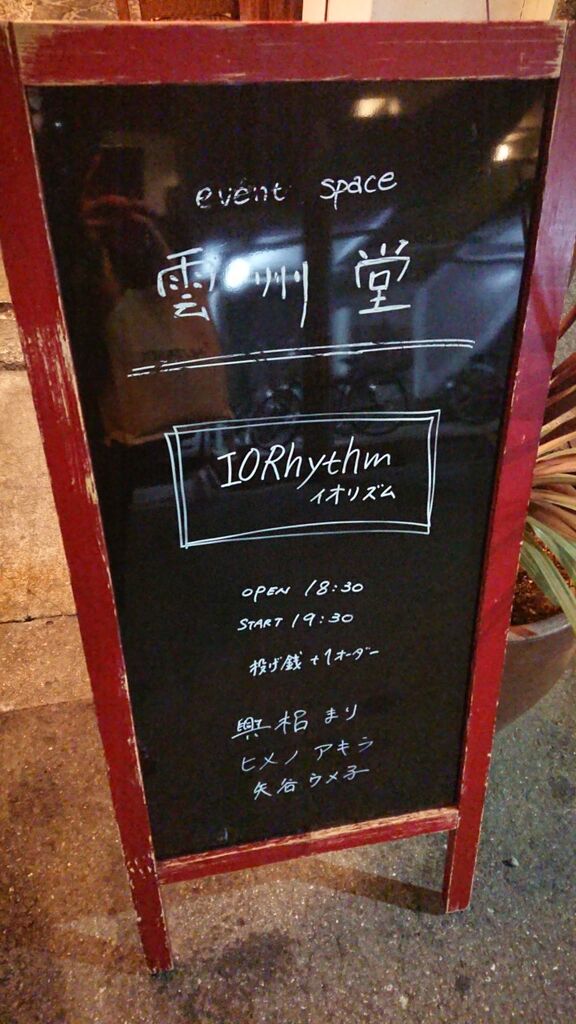 event space
雲州堂
IORhythm
イオリズム
OPEN 18:30
START 19:30
投げ銭 +1オーダー
興梠 まり
ヒメノ アキラ
矢谷ウメ子